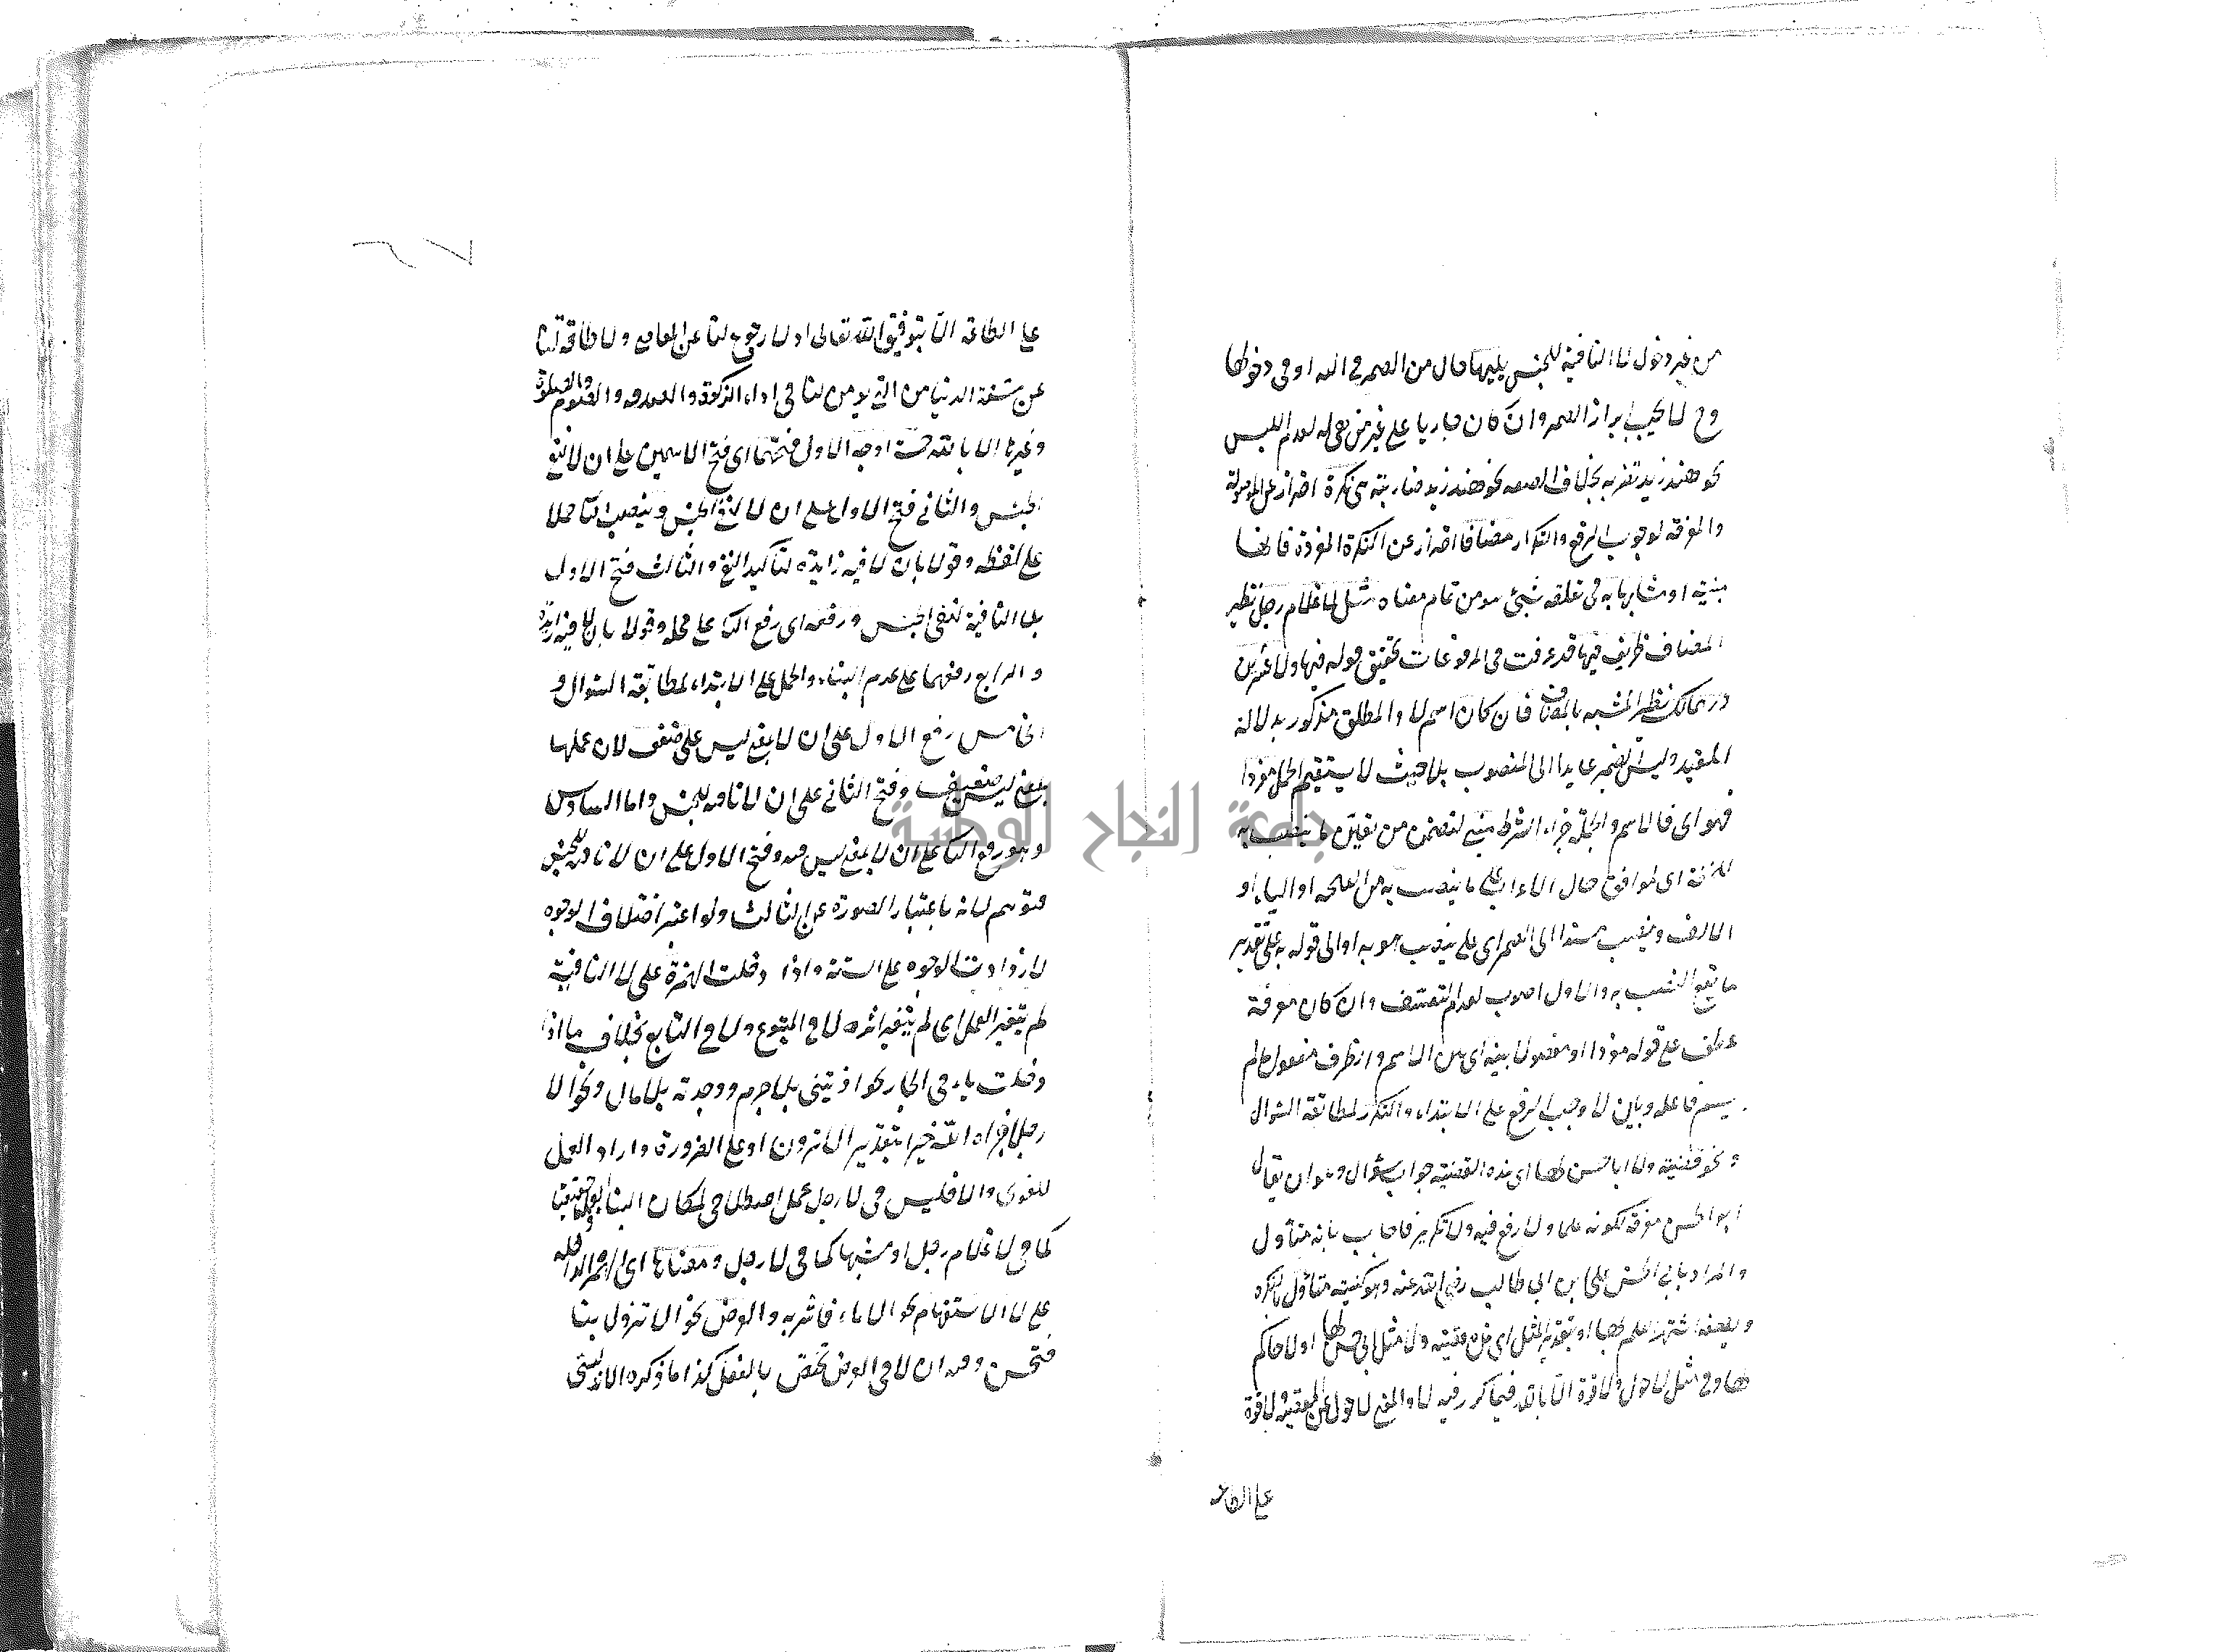 من غير دخول لا النافية للجنس يليها حال من الضمير في اليه او في دخولها
وح لا يجب ابراز الضمير وان كان جاريا على غير من هي له لعدم اللبس
نحو هند زيد تضربه بخلاف الصفة نحو هند زيد ضاربته هي نكرة احتراز عن الموصولة
والمعرفة لوجوب الرفع والتكرار مضافا احتراز عن النكرة المفردة فانها
مبنية او مشابها به في تعلقه بشيء هو من تمام معناه مثل لا غلام رجل نظير
المضاف ظريف فيها قد عرفت في المرفوعات تحقيق قوله فيها ولا عشرين
درهما لك نظير المشبه بالمضاف فان كان اسم لا والمطلق مذكور بدلالة
المقيد وليس الضمير عايدا الى المنصوب بلا حيث لا يستقيم الحمل مفردا
فهو اي فالاسم والجملة جزاء الشرط مبني لتضمن من يقين ما ينصب به
اي لموافق حال الاعراب على ما ينصب به من الفتحة او الياء او
الالف وينصب مسند الى الضمير اي على ينصب هو به او الى قوله به على تقدير
ما يقع النصب به والاول اصوب لعدم التعسف وان كان معرفة
عطف على قوله مفردا او مفصولا بينه اي بين الاسم والظرف مفعول ما لم
يسم فاعله وبين لا وجب الرفع على الابتداء والتكرير لمطابقة السؤال
ونحو قضية ولا ابا حسن لها اي هذه القضية جواب سؤال وهو ان يقال
ابو الحسن معرفة لكونه علما ولا رفع فيه ولا تكرير فاجاب بانه متأول
والمراد بابي الحسن علي ابن ابي طالب رضي الله عنه وهو كنيته متأول بنكرة
وبصفة اشتهر العلم بها او بتقدير المثل اي هذه قضية ولا مثل ابي حسن لها اولا حاكم
لها وفي مثل لا حول ولا قوة الا بالله فيما كرر فيه لا والمعنى لا حول عن المعصية ولا قوة
على الطاعة
على الطاعة الا بتوفيق الله تعالى او لا رجوع لنا عن المعاصي ولا طاقة لنا
عن مشقة الدنيا من التي يومن لنا في اداء الزكوة والصدقة والصوم والصلوة
وغيرها الا بالله خمسة اوجه الاول فتحهما اي فتح الاسمين على ان لا لنفي
الجنس والثاني فتح الاول على ان لا لنفي الجنس وينصب الثاني حملا
على لفظه وقولا بان لا فيه زايدة لتاكيد النفي والثالث فتح الاول
بلا النافية لنفي الجنس ورفعه اي رفع الثاني على محله وقولا بان لا فيه زايدة
والرابع رفعهما على عدم البناء والحمل على الابتداء لمطابقة السوال و
الخامس رفع الاول على ان لا بمعنى ليس على ضعف لان عملها
بمعنى ليس ضعيف وفتح الثاني على ان لا نافية للجنس واما السادس
وهو رفع الثاني على ان لا بمعنى ليس فيه وفتح الاول على ان لا نافية للجنس
متوهم لانه باعتبار الصورة عين الثالث ولو اعتبر اختلاف الوجوه
لازدادت الوجوه على الستة واذا دخلت الهمزة على لا النافية
لم يتغير العمل اي لم يتغير اثره لا في المتبوع ولا في التابع بخلاف ما اذا
دخلت باء في الجار نحو اذيتني بلا جرم ووجدته بلا مال ونحو الا
رجلا جزاه الله خيرا بتقدير الا ترون او على الضرورة واراد العمل
اللغوى والا فليس في لا رجل عمل اصطلاحي لمكان البناء
كما في لا غلام رجل او مشبها كما في لا رجل ومعناها اي الهمزة الداخلة
على لا الاستفهام نحو الا ماء فاشربه والعرض نحو الا تنزول بنا
فتحسن وعد ان لا في العرض تختص بالفعل كذا ما ذكره الاندلسي